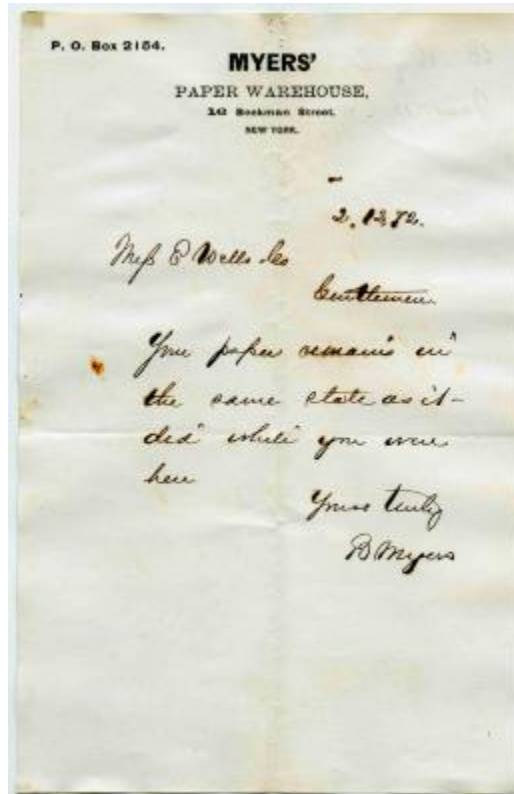 P. O. Box 2154.
MYERS'
PAPER WAREHOUSE,
16 Beekman Street.
NEW YORK.
2.13.72.
Mess E Wells &Co
Gentlemen
Your paper remains in
the same state as it
did while you were
here
Yours truly
B Myers